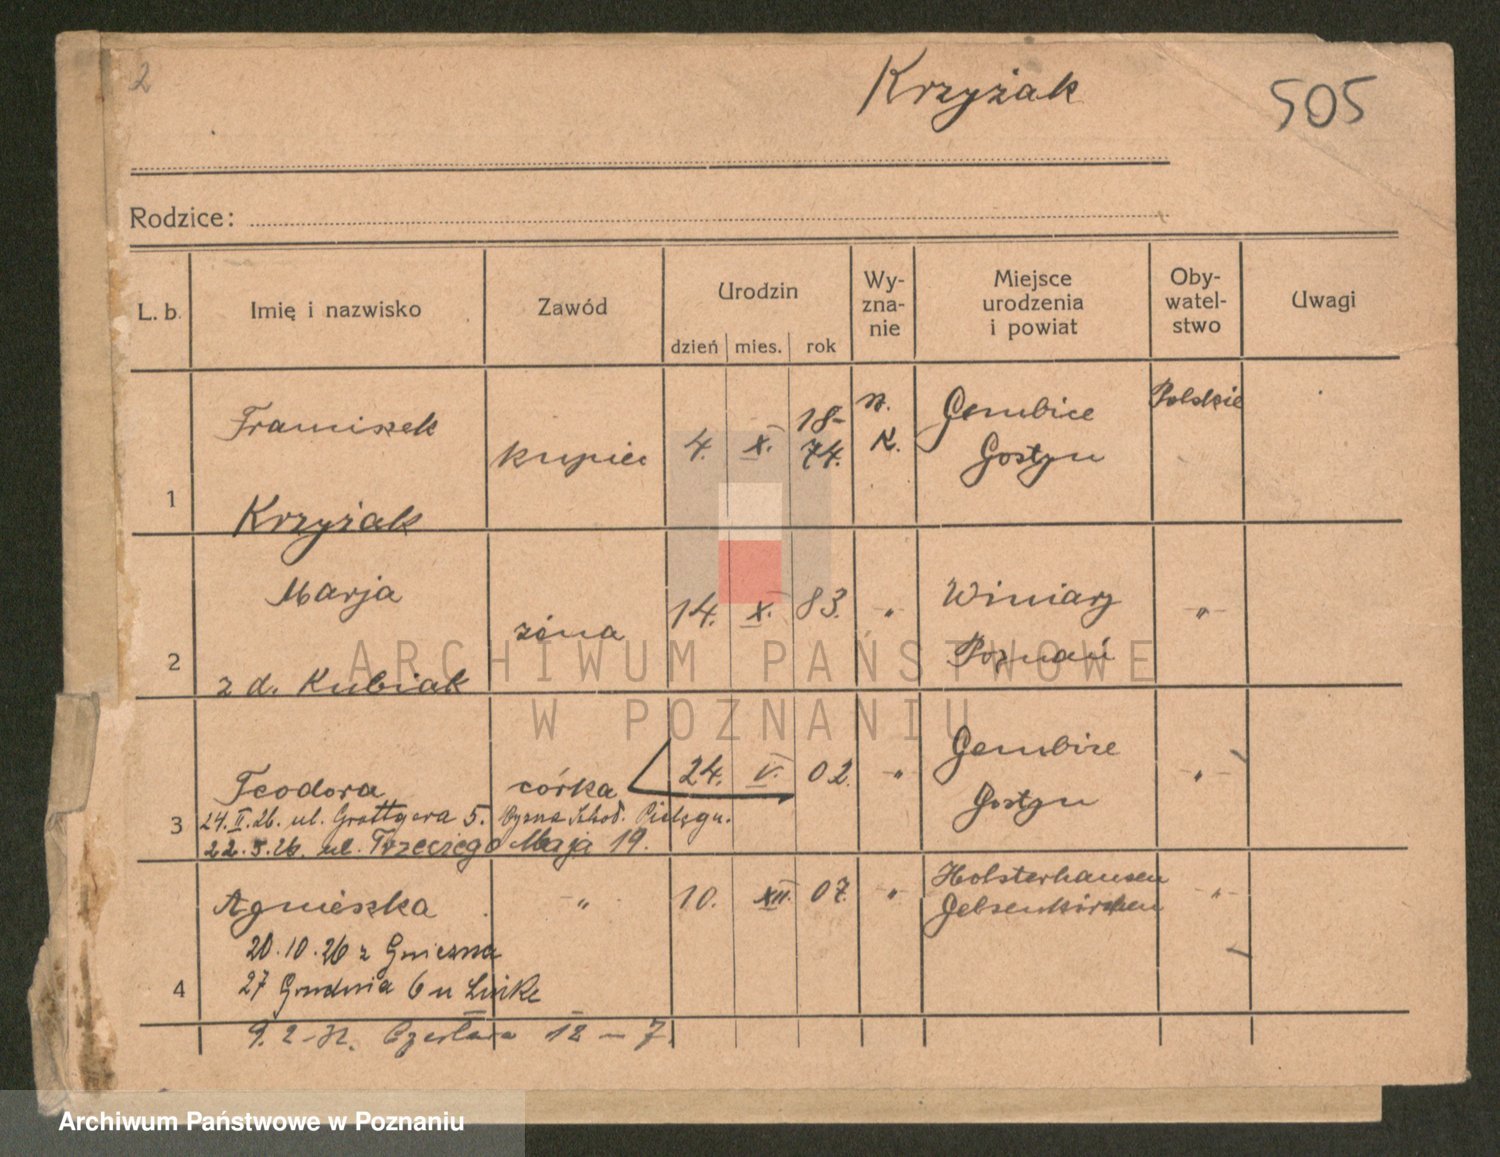 2
Krzyżak
505
Rodzice:
L. b. Imię i nazwisko Zawód Urodzin dzień mies. rok Wy-zna-nie Miejsce urodzenia i powiat Oby-watel-stwo Uwagi
1 Franciszek Krzyżak kupiec 4. X. 18-74. rz. K. Gembice Gostyn Polskie
2 Marja z d. Kubiak żona 14. X. 83. -"- Winiary Poznań -"-
3 Teodora córka 24. V. 02. -"- Gembice Gostyn -"-
24.II.26. ul. Grottgera 5. Pielęgn.
22.5.26. ul. Trzeciego Maja 19.
4 Agnieszka -"- 10. XII. 07. -"- Holsterhausen Gelsenkirchen -"-
20.10.26 z Gniezna
27 Grudnia 6 u
9.2-32. Czesława 12 – 7.
ARCHIWUM PAŃSTWOWE
W POZNANIU
Archiwum Państwowe w Poznaniu